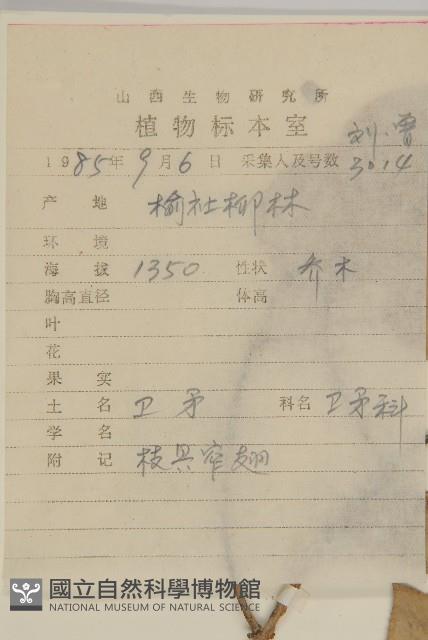 山西生物研究所
植物标本室
刘、曹
1985年9月6日 采集人及号数 3014
产地 榆社柳林
环境
海拔 1350 性状 乔木
胸高直径 体高
叶
花
果实
土名 卫矛 科名 卫矛科
学名
附记 枝具窄翅
國立自然科學博物館
NATIONAL MUSEUM OF NATURAL SCIENCE